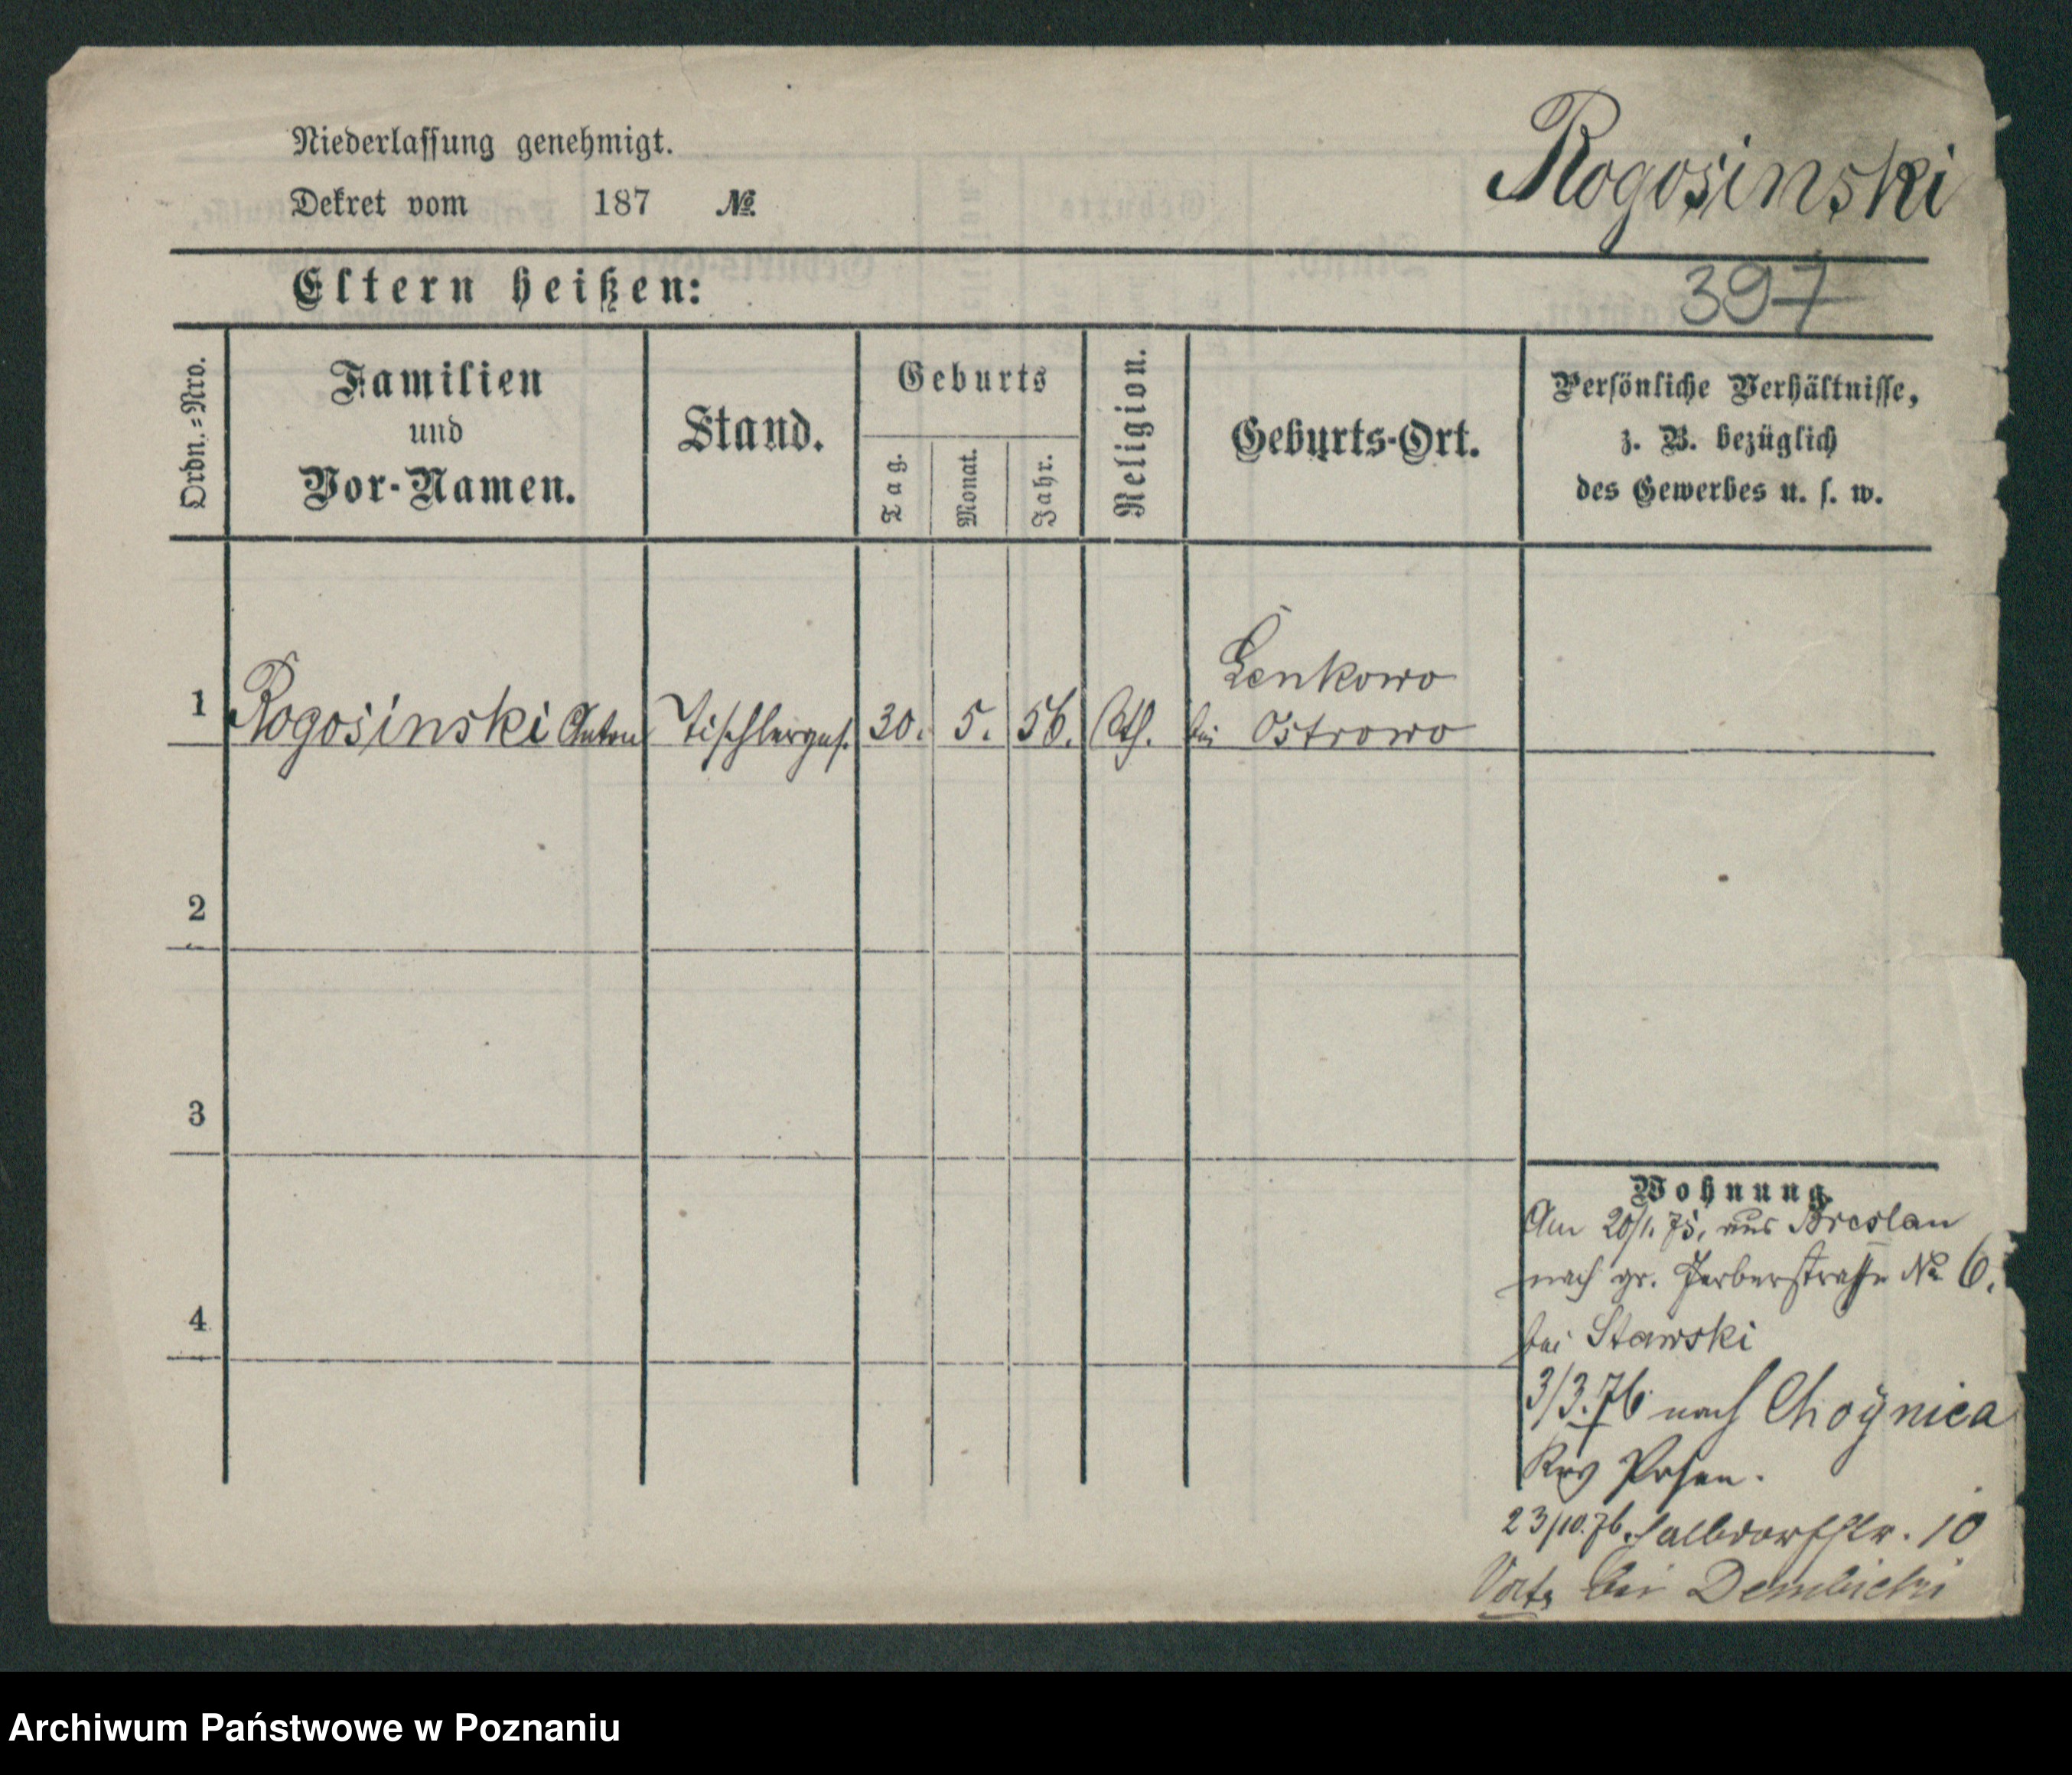 Niederlassung genehmigt.
Dekret vom 187 №
Rogosinski
397
Eltern heißen:
Ordn.=Nro.
Familien
und
Vor-Namen.
Stand.
Geburts
Tag.
Monat.
Jahr.
Religion.
Geburts-Ort.
Persönliche Verhältnisse,
z. B. bezüglich
des Gewerbes u. s. w.
Lenkowo
1 Rogosinski Anton Tischlerges. 30. 5. 56. Cth. bei Ostrowo
2
3
4
Wohnung.
Am 20/1. 75, aus Breslau
nach gr. Gerberstraße No 6.
bei Stawski
3/3. 76 nach Choynica
Posen.
23/10. 76. Halbdorfstr. 10
bei Dembicki
Archiwum Państwowe w Poznaniu